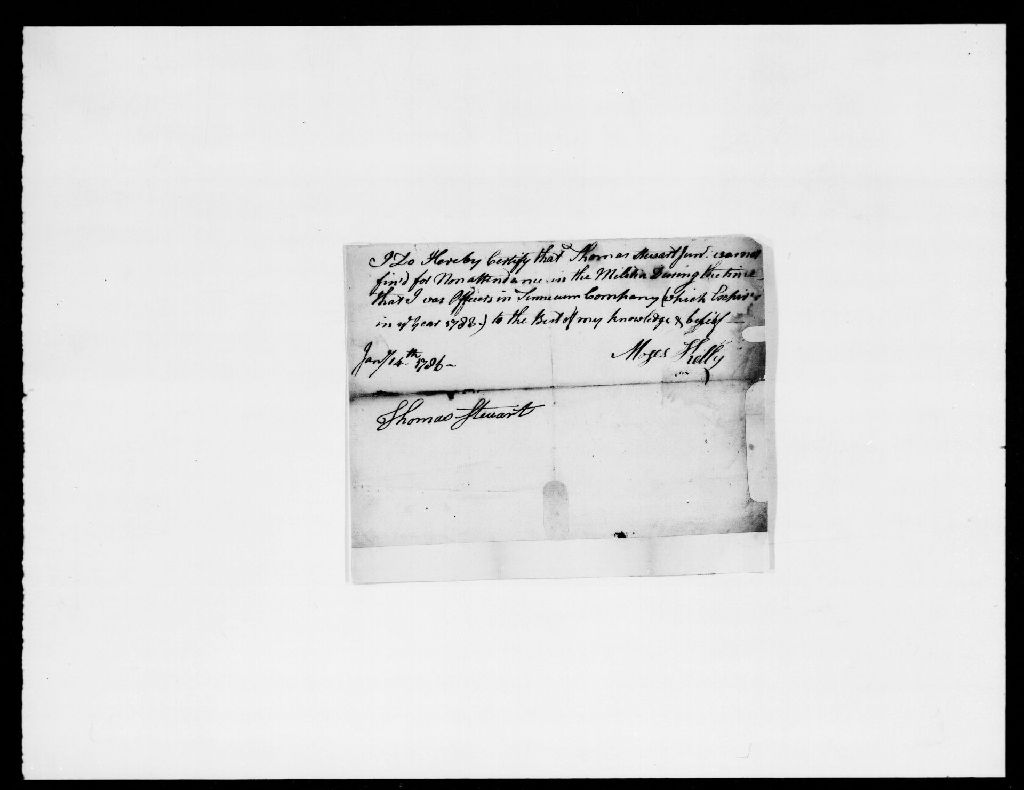 I Do Hereby Certify that Thomas Stewart Junr. was not
fin'd for Nonattendance in the Militia During the time
that I was Officer in Simicum Company (which Expired
in ye Year 1782) to the Best of my knowledge & belief
Jany 14th 1786
Moses Kelly
Thomas Stewart